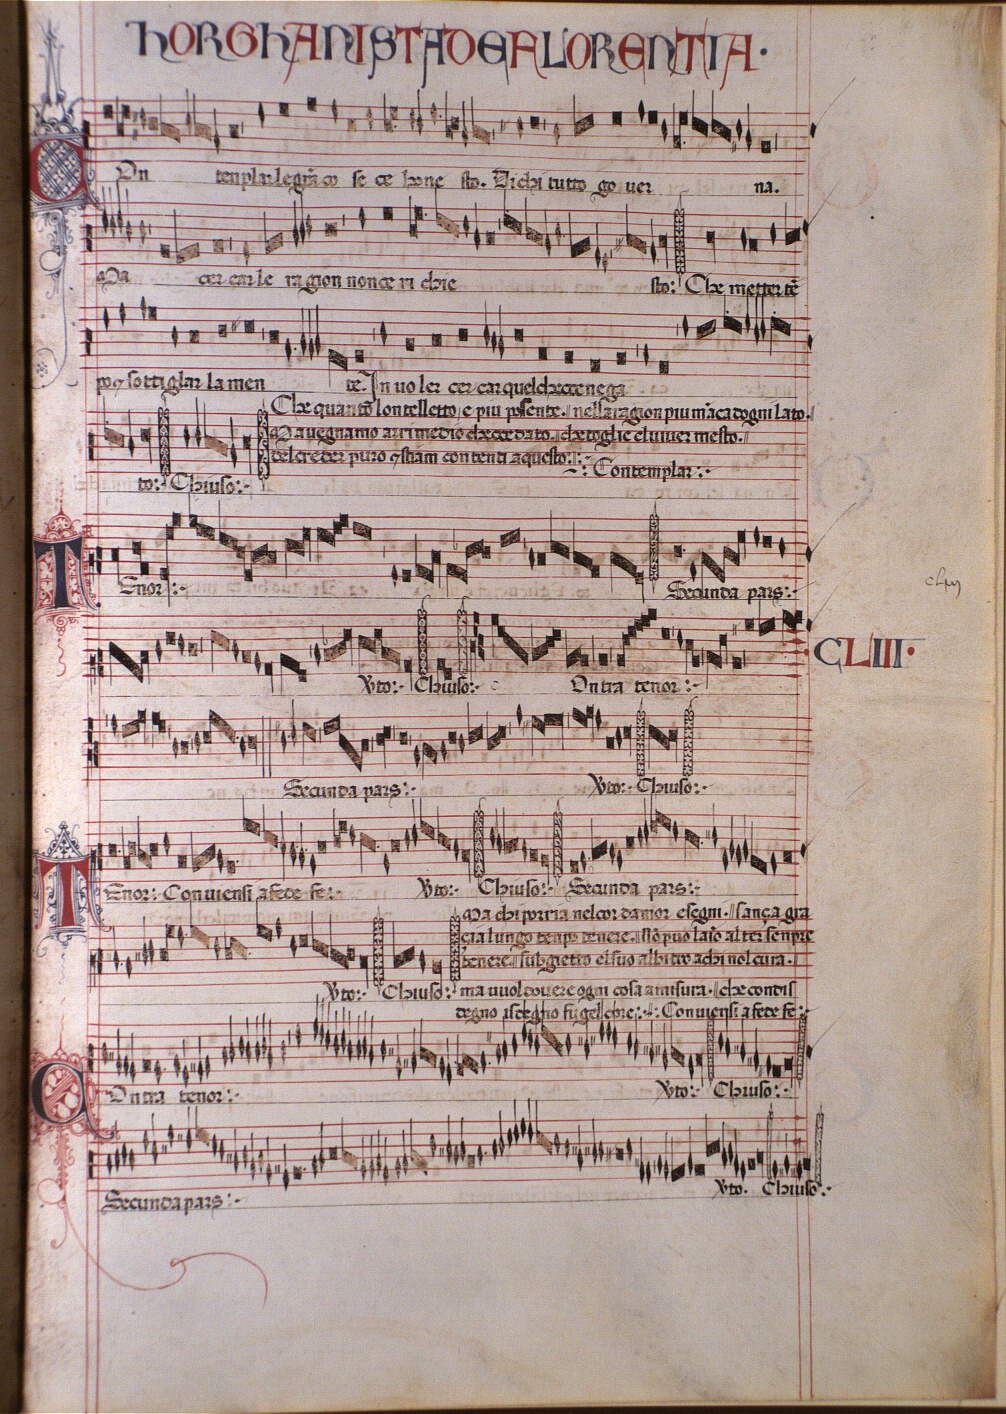 hORGhANISTA DE FLORENTIA·
COn templar le gra͞ co se ce hone sto. Dichi tutto go ver na.
Ma cer car le ra gion non ce ri chie sto: Che metter te͞
po ꝯ sottiglar la men te. In vo ler cer car quel che cce nega
Che quanto lontelletto e piu possente. nella ragion piu ma͞ca dogni lato.
Ma vegnamo al rimedio che cce dato. che toglie el viver mesto.
del creder puro ꝯ stiam contenti a questo: Contemplar:
to: Chiuso:
TEnor: Secunda pars:
CLIII·
Vto: Chiuso: COntra tenor:
Secunda pars: Vto: Chiuso:
TEnor: Conviensi a fede fe: Vto: Chiuso: Secunda pars:
Ma chi porria nel cor damor e segni. sança gra
cia lungo tenpo tenere. No͞ puo laso altri senpre
tenere. subgietto el suo albitro a chi nol cura.
Vto: Chiuso: ma vuol dovere ogni cosa a misura. che con dis
degno isdegno fugel chore: Conviensi a fede fe:
COntra tenor: Vto: Chiuso:
Secunda pars: Vto. Chiuso: